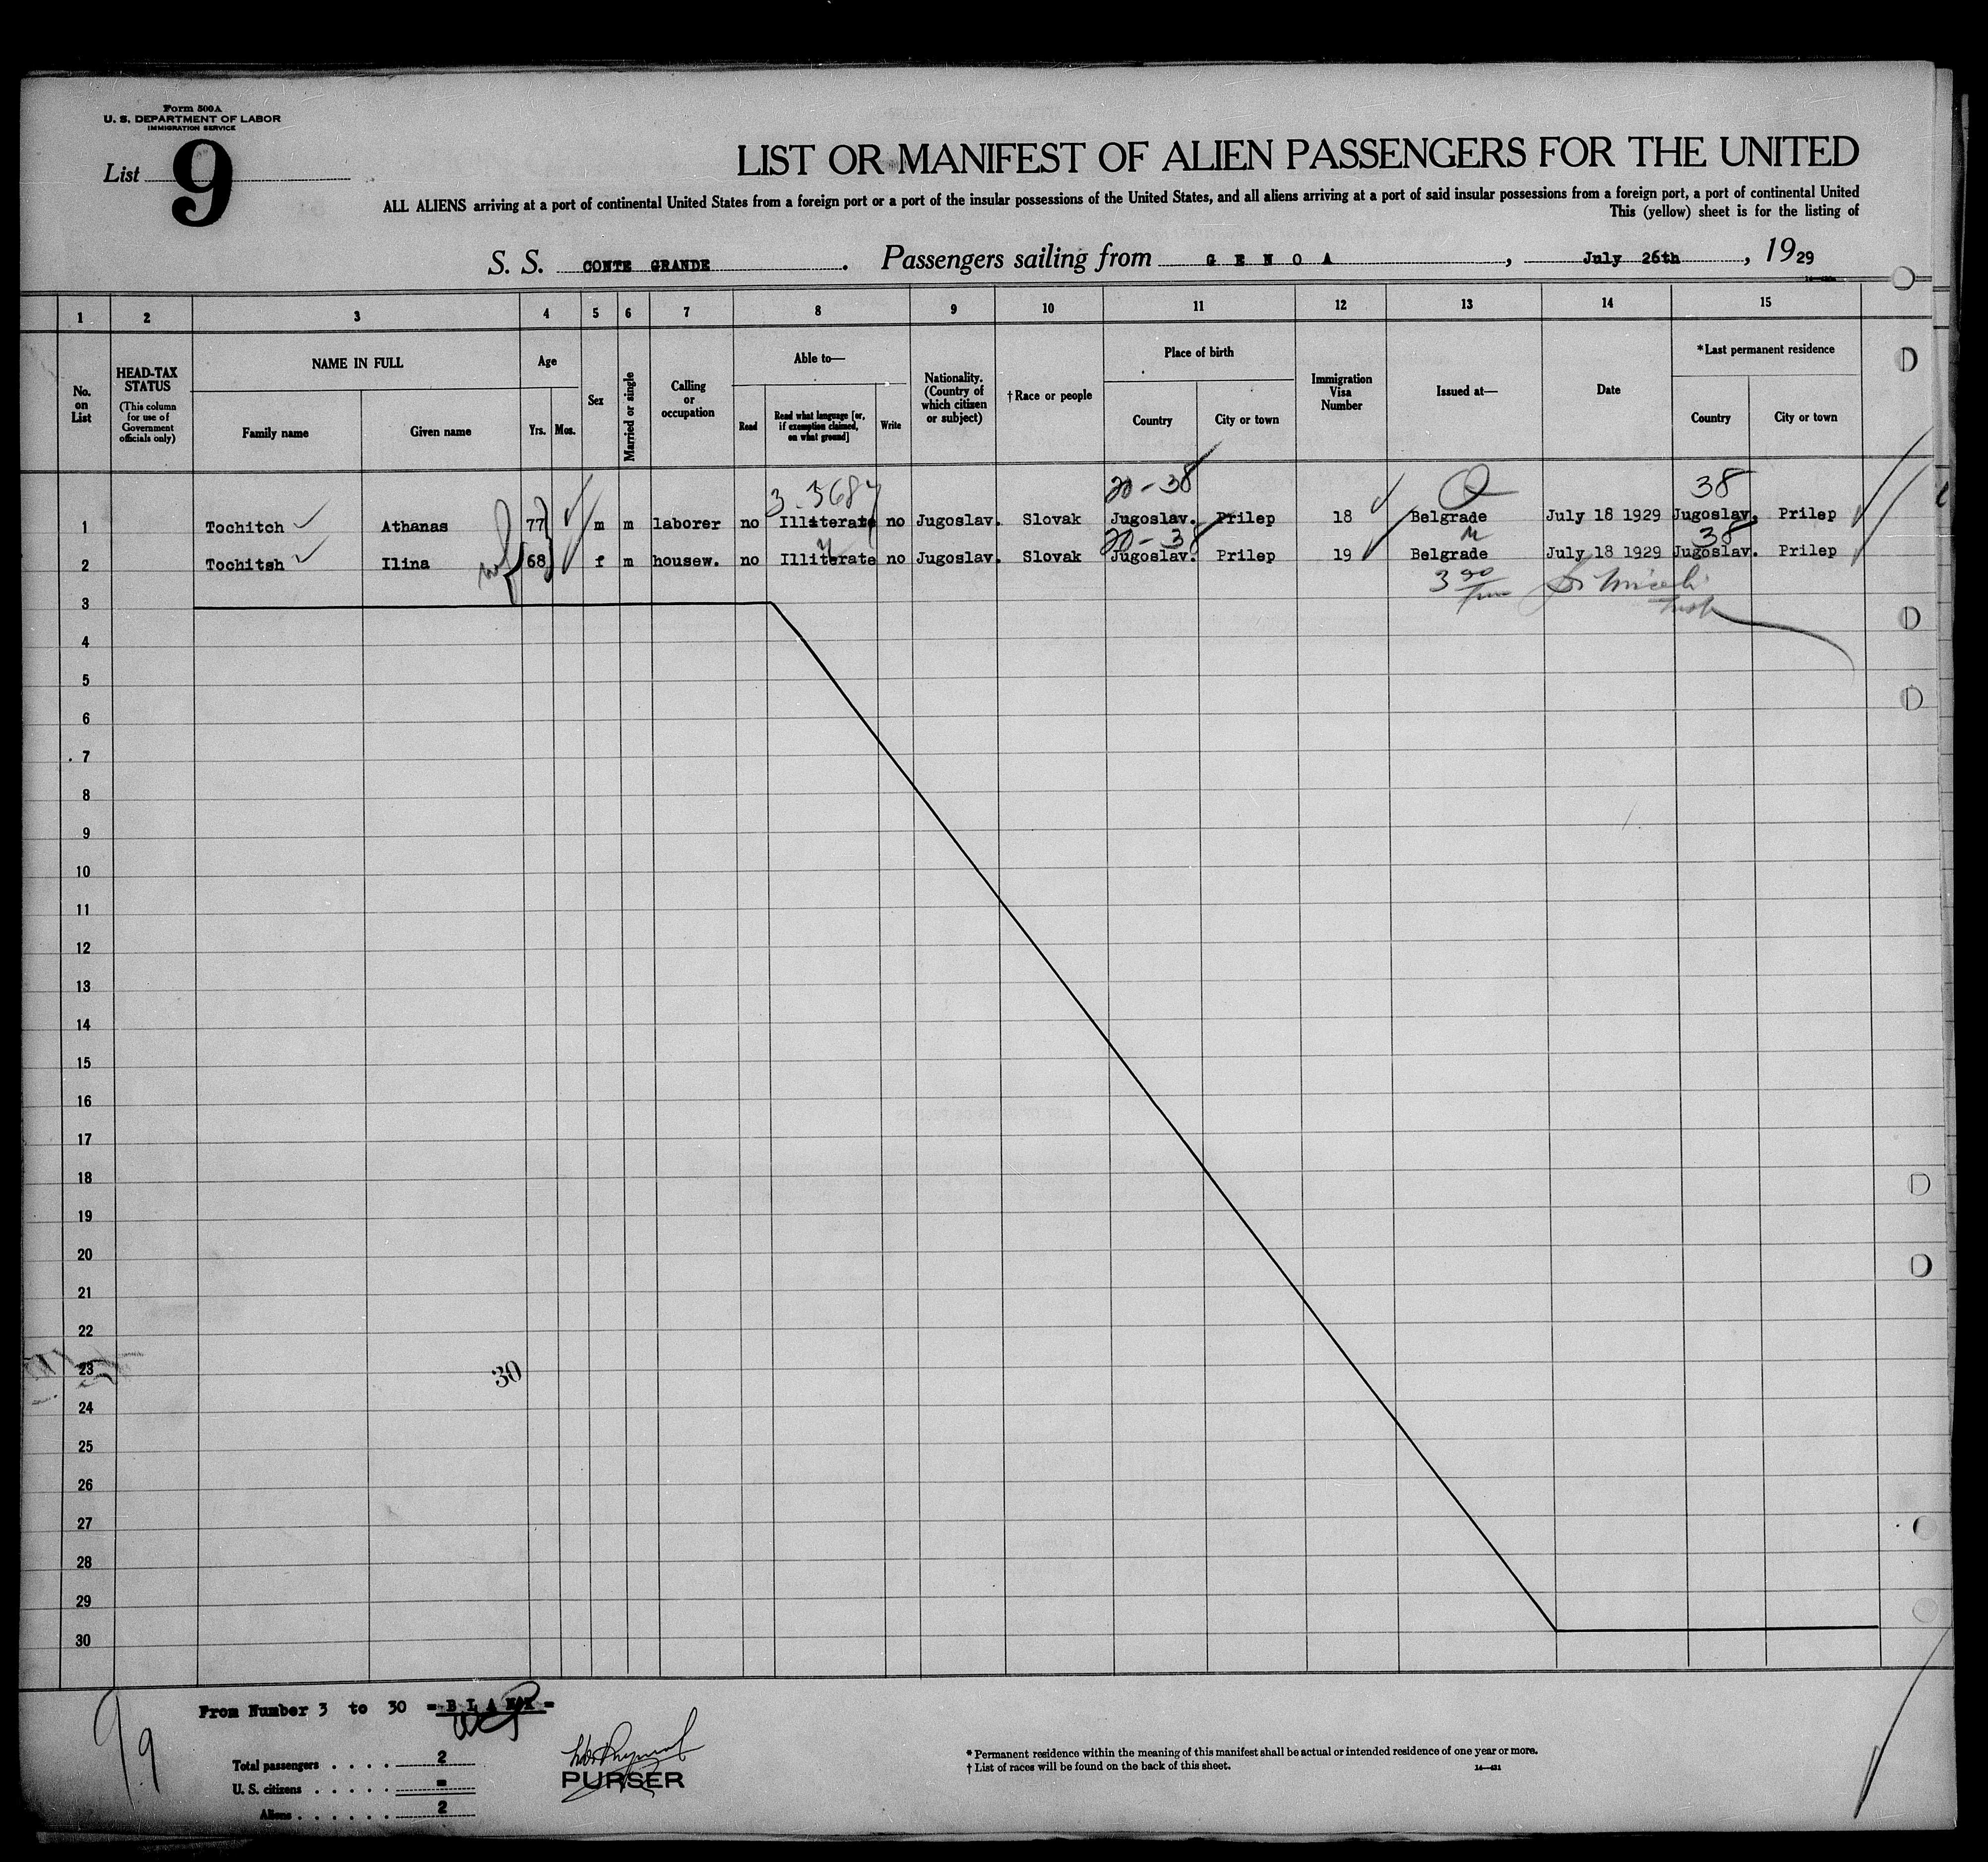 Form 500A
U. S. DEPARTMENT OF LABOR
IMMIGRATION SERVICE
List 9
LIST OR MANIFEST OF ALIEN PASSENGERS FOR THE UNITED
ALL ALIENS arriving at a port of continental United States from a foreign port or a port of the insular possessions of the United States, and all aliens arriving at a port of said insular possessions from a foreign port, a port of continental United
This (yellow) sheet is for the listing of
S. S. CONTE GRANDE. Passengers sailing from G E N O A, July 26th, 1929
1 2 3 4 5 6 7 8 9 10 11 12 13 14 15
No. on List
HEAD-TAX STATUS (This column for use of Government officials only)
NAME IN FULL
Family name Given name
Age
Yrs. Mos.
Sex
Married or single
Calling or occupation
Able to—
Read
Read what language [or, if exemption claimed, on what ground]
Write
Nationality. (Country of which citizen or subject)
†Race or people
Place of birth
Country City or town
Immigration Visa Number
Issued at—
Date
*Last permanent residence
Country City or town
20-38 38
1 Tochitch Athanas 77 m m laborer no Illiterate no Jugoslav. Slovak Jugoslav. Prilep 18 Belgrade July 18 1929 Jugoslav. Prilep
20-38 38
2 Tochitsh Ilina 68 f m housew. no Illiterate no Jugoslav. Slovak Jugoslav. Prilep 19 Belgrade July 18 1929 Jugoslav. Prilep
3
4
5
6
7
8
9
10
11
12
13
14
15
16
17
18
19
20
21
22
23
30
24
25
26
27
28
29
30
From Number 3 to 30 =BLANK=
99
Total passengers . . . . 2
U. S. citizens . . . . . =
Aliens . . . . . . 2
PURSER
* Permanent residence within the meaning of this manifest shall be actual or intended residence of one year or more.
† List of races will be found on the back of this sheet.
14—431